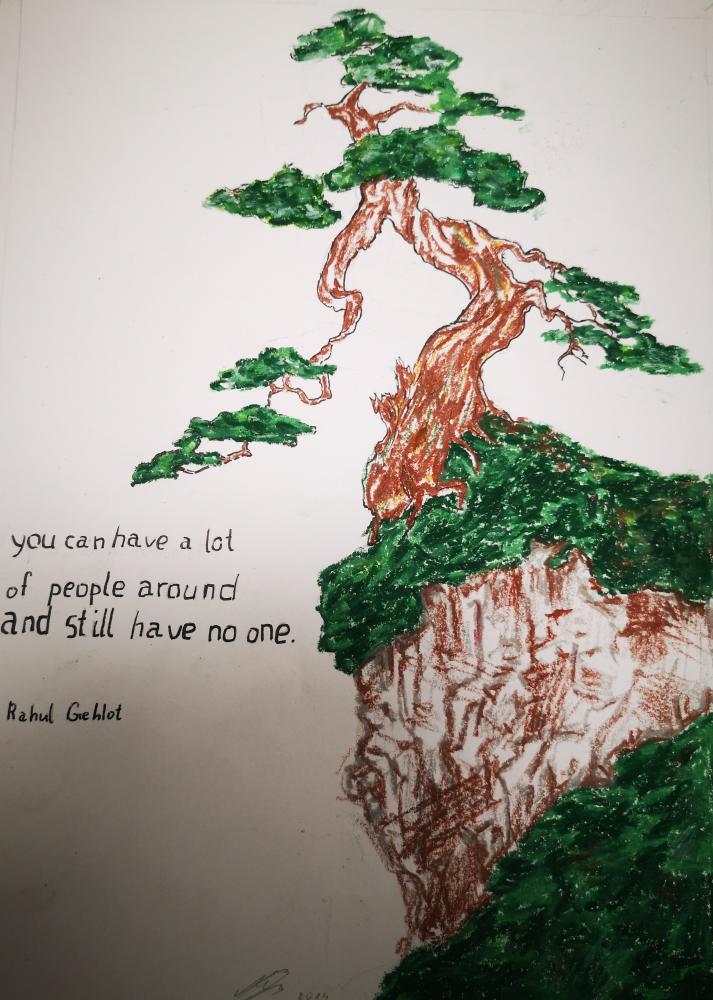 you can have a lot
of people around
and still have no one.
Rahul Gehlot